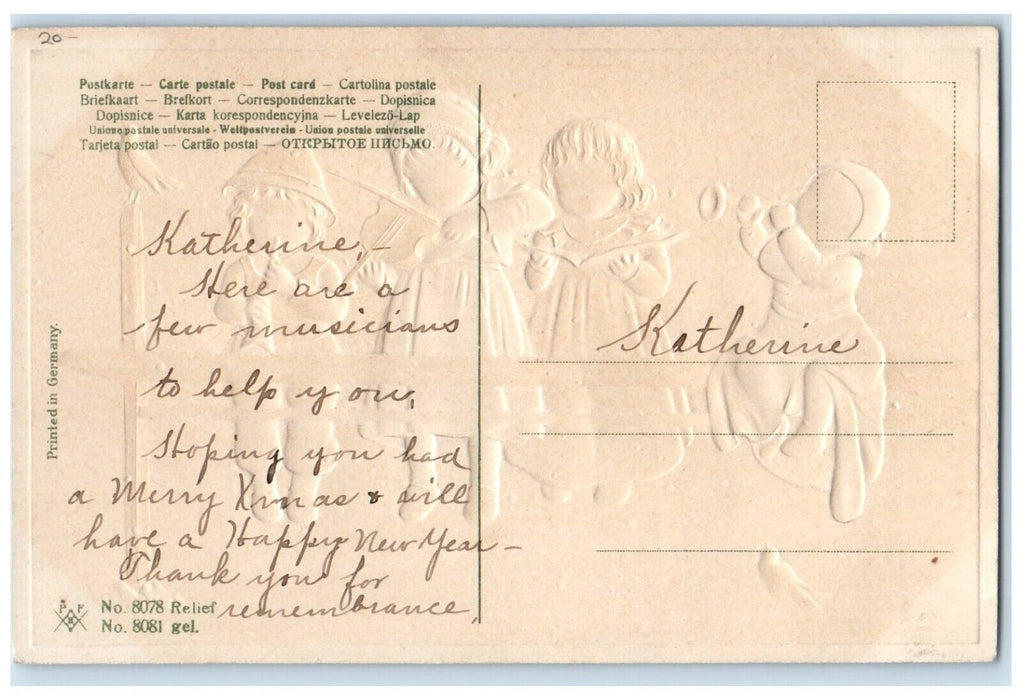 20-
Postkarte — Carte postale — Post card — Cartolina postale
Briefkaart — Brefkort — Correspondenzkarte — Dopisnica
Dopisnice — Karta korespondencyjna — Levelező-Lap
Unione postale universale - Weltpostverein - Union postale universelle
Tarjeta postal — Cartão postal — ОТКРЫТОЕ ПИСЬМО.
Katherine, -
Here are a
few musicians
to help you.
Hoping you had
a Merry Xmas & will
have a Happy New Year -
Thank you for
remembrance.
Katherine
Printed in Germany.
P F B
No. 8078 Relief
No. 8081 gel.